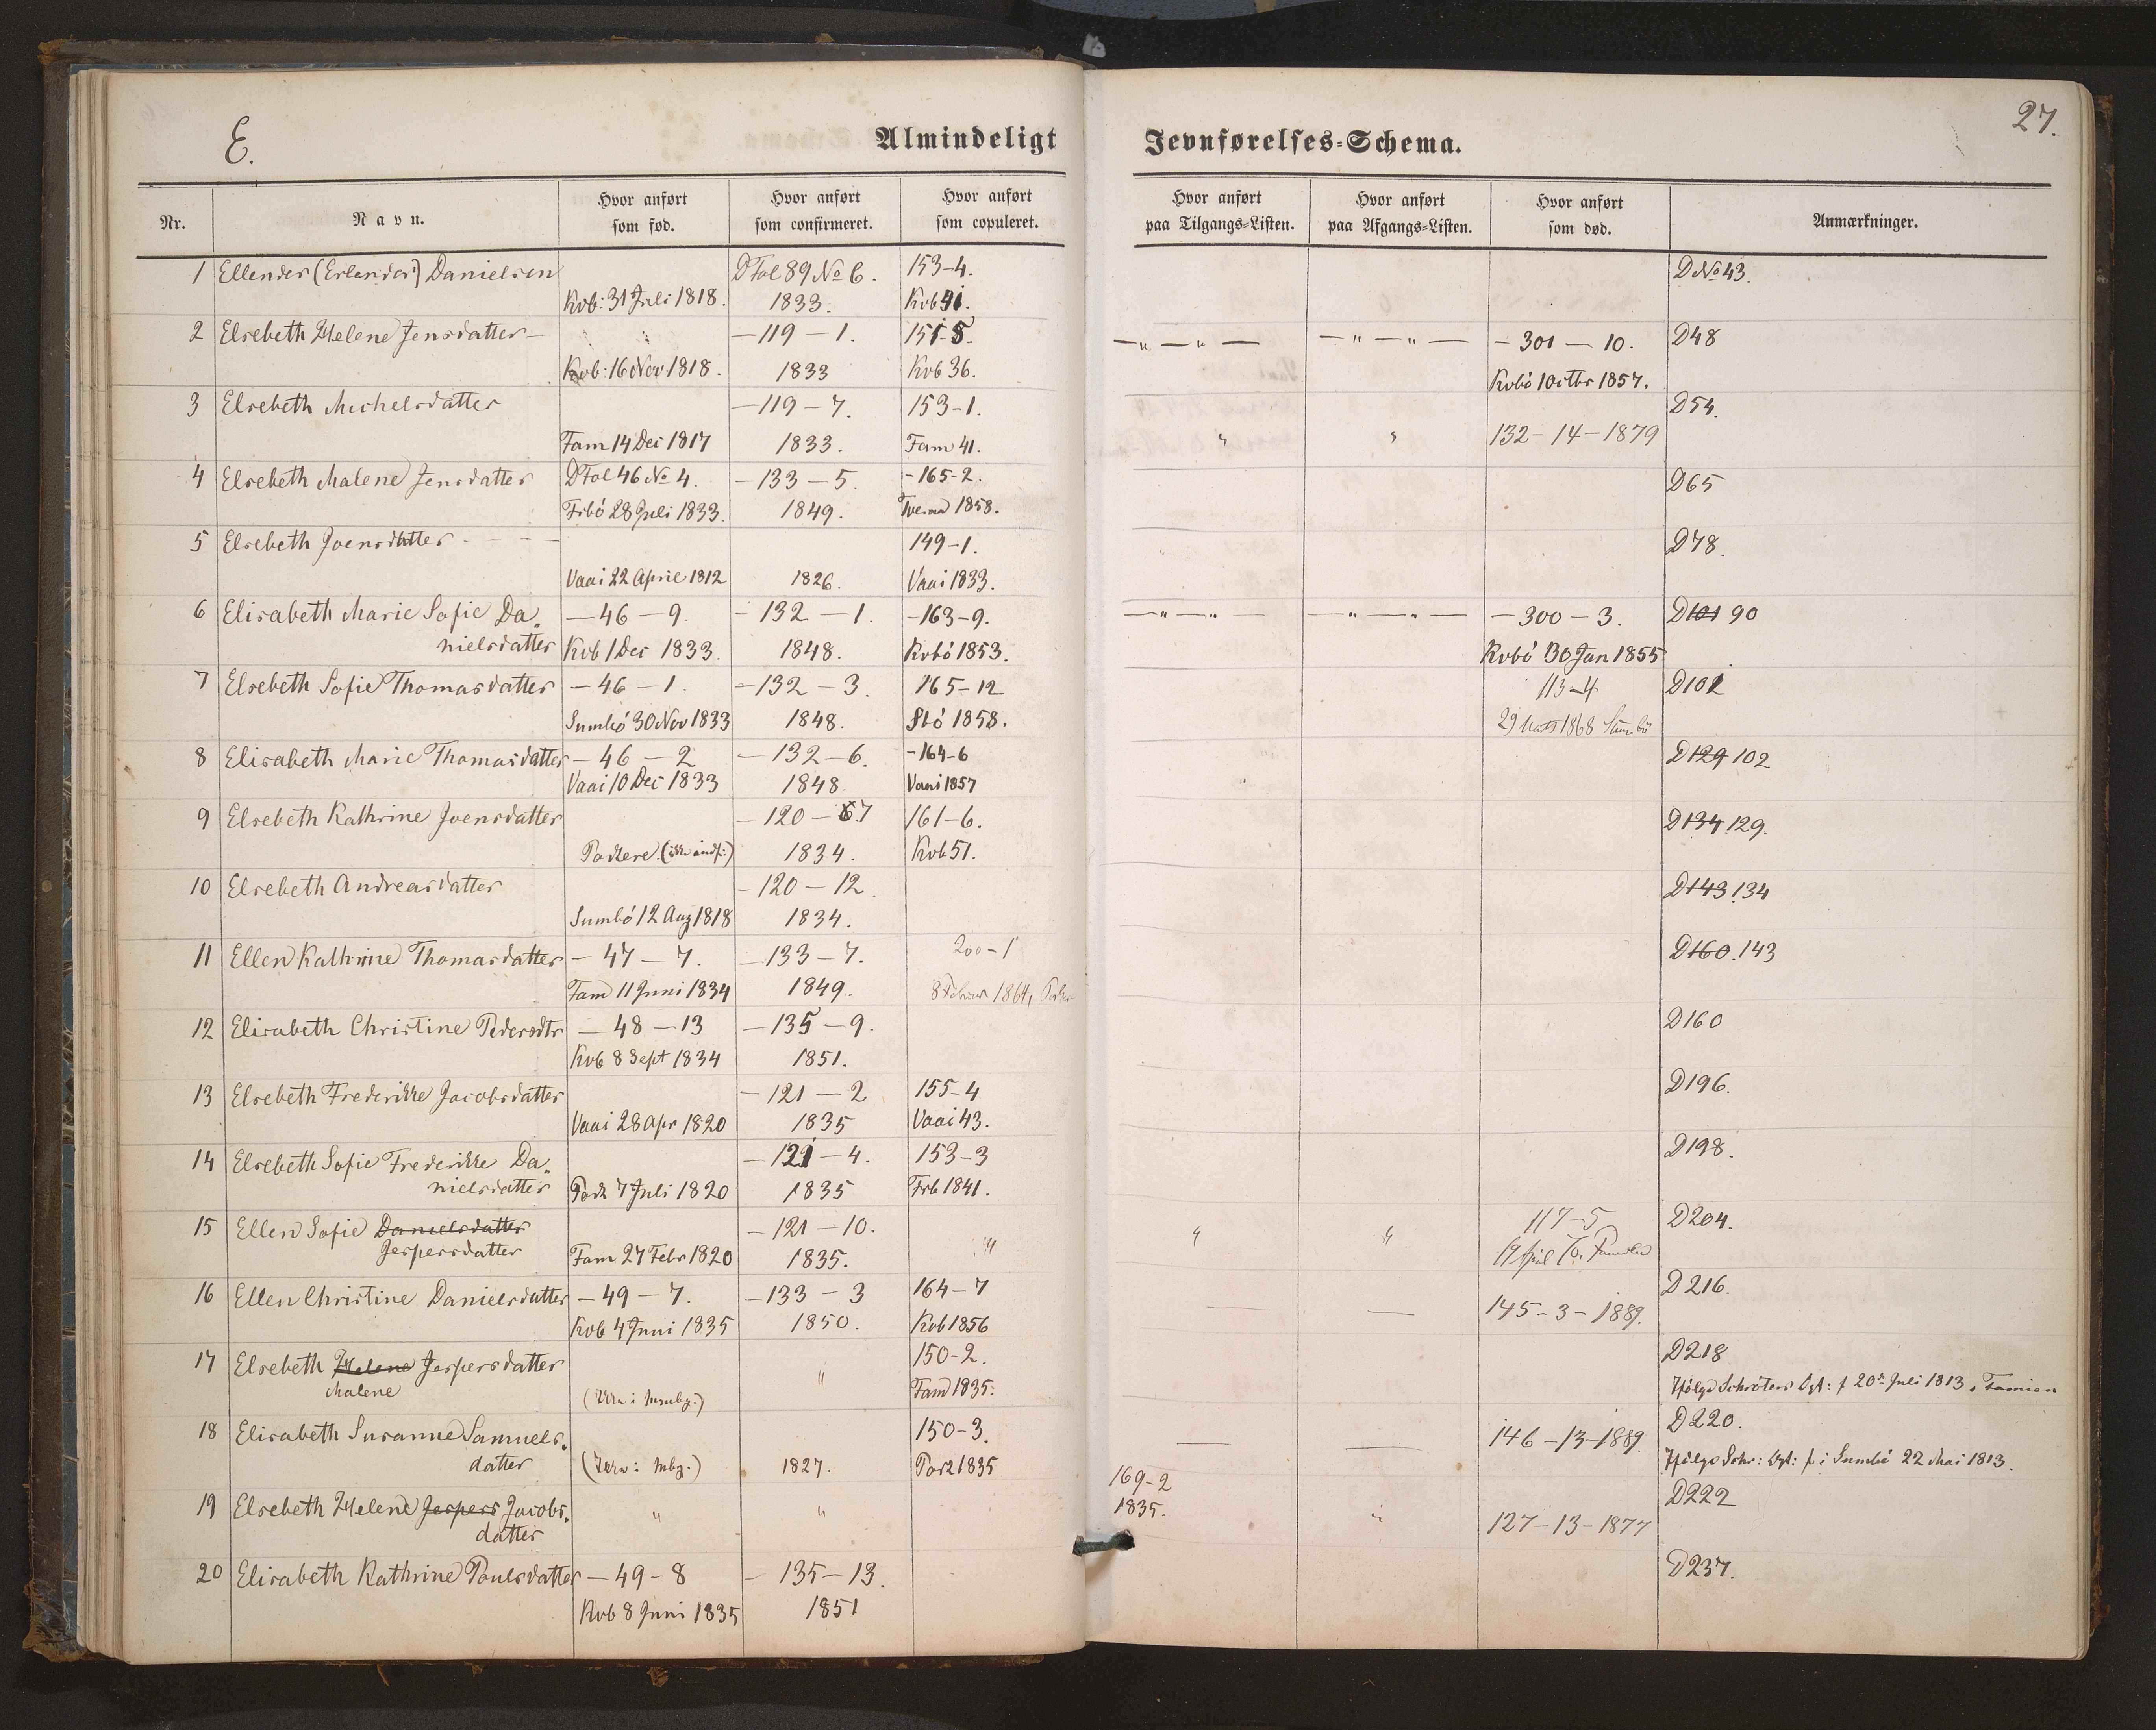 27.
E. Almindeligt Jevnførelses=Schema.
Nr. Navn. Hvor anført som fød. Hvor anført som confirmeret. Hvor anført som copuleret. Hvor anført paa Tilgangs=Listen. Hvor anført paa Afgangs=Listen. Hvor anført som død. Anmærkninger.
1 Ellender (Erlendur) Danielsen DFol 89 No 6. 153-4. DNo 43.
Kvb: 31 Juli 1818. 1833. Kvb 41.
2 Elsebeth Helene Jensdatter — " " —119 — 1. 151-5. — " — " — — " — " — — 301 — 10. D48
Kvb: 16 Nov 1818. 1833 Kvb 36. Kvbö 10 Octbr 1857.
3 Elsebeth Michelsdatter —119 — 7. 153-1. D54.
Fam 14 Dec 1817 1833. Fam 41. " " 132-14-1879
4 Elsebeth Malene Jensdatter DFol 46 No 4. —133 — 5. -165-2. D65
Frbö 28 Juli 1833. 1849. Tveraa 1858.
5 Elsebeth Joensdatter - - - 149-1. D78.
Vaai 22 April 1812 1826. Vaai 1833.
6 Elisabeth Marie Sofie Da„ —46 — 9. — 132 — 1. -163-9. — " — " — — " — " — — 300 — 3. D101 90
nielsdatter Kvb 1 Dec 1833. 1848. Kvbö 1853. Kvbö 30 Jan 1855
7 Elsebeth Sofie Thomasdatter — 46 — 1. —132 — 3. 165-12 113-4 D101
Sumbö 30 Nov 1833 1848. Sbö 1858. 29 Marts 1868 Sumbö
8 Elisabeth Marie Thomasdatter — 46 — 2 — 132 — 6. -164-6 D129 102
Vaai 10 Dec 1833 1848. Vaai 1857
9 Elsebeth Kathrine Joensdatter — 120 — 6.7 161-6. D134.129.
Porkere. (ikke indf:) 1834. Kvb 51.
10 Elsebeth Andreasdatter — 120 — 12. D143.134
Sumbö 12 Aug 1818 1834.
11 Ellen Kathrine Thomasdatter — 47 — 7. —133 — 7. 200-1 D160.143
Fam 11 Juni 1834 1849. 1864,
12 Elisabeth Christine Pedersdtr — 48 — 13 —135 — 9. D160
Kvb 8 Sept 1834 1851.
13 Elsebeth Frederikke Jacobsdatter —121 — 2 155-4 D196.
Vaai 28 Apr 1820 1835 Vaai 43.
14 Elsebeth Sofie Frederikke Da„ —121 — 4. 153-3 D198.
nielsdatter Pork 7 Juli 1820 1835 Frb 1841.
15 Ellen Sofie Danielsdatter —121 — 10. " " 117-5 D204.
Jespersdatter Fam 27 Febr 1820 1835. " 19 April
16 Ellen Christine Danielsdatter — 49 — 7. —133 — 3 164-7 D216.
Kvb 4 Juni 1835 1850. Kvb 1856 — — 145-3-1889.
17 Elsebeth Helene Jespersdatter " 150-2. D218
Malene Fam 1835. Ifölge Schröters Opt: f 20de Juli 1813 i Famien
18 Elisabeth Susanne Samuels„ 150-3. — — 146-13-1889. D220.
datter 1827. Pork 1835 Ifölge Schr: Opt: f i Sumbö 22 Mai 1813.
19 Elsebeth Helene Jespers Jacobs„ " " 169-2 " D222
datter 1835. 127-13-1877
20 Elisabeth Kathrine Poulsdatter — 49 - 8 — 135-13. D237.
Kvb 8 Juni 1835 1851